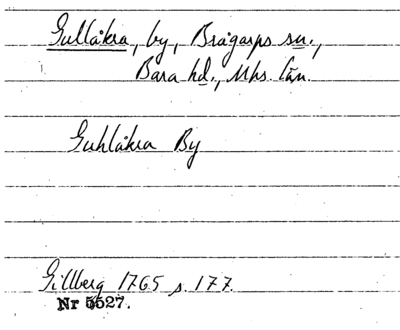 Gullåkra, by, Brågarps sn.,
Bara hd., Mhs. län.
Guhlåkra By
Gillberg 1765 s. 177.
Nr 5527.